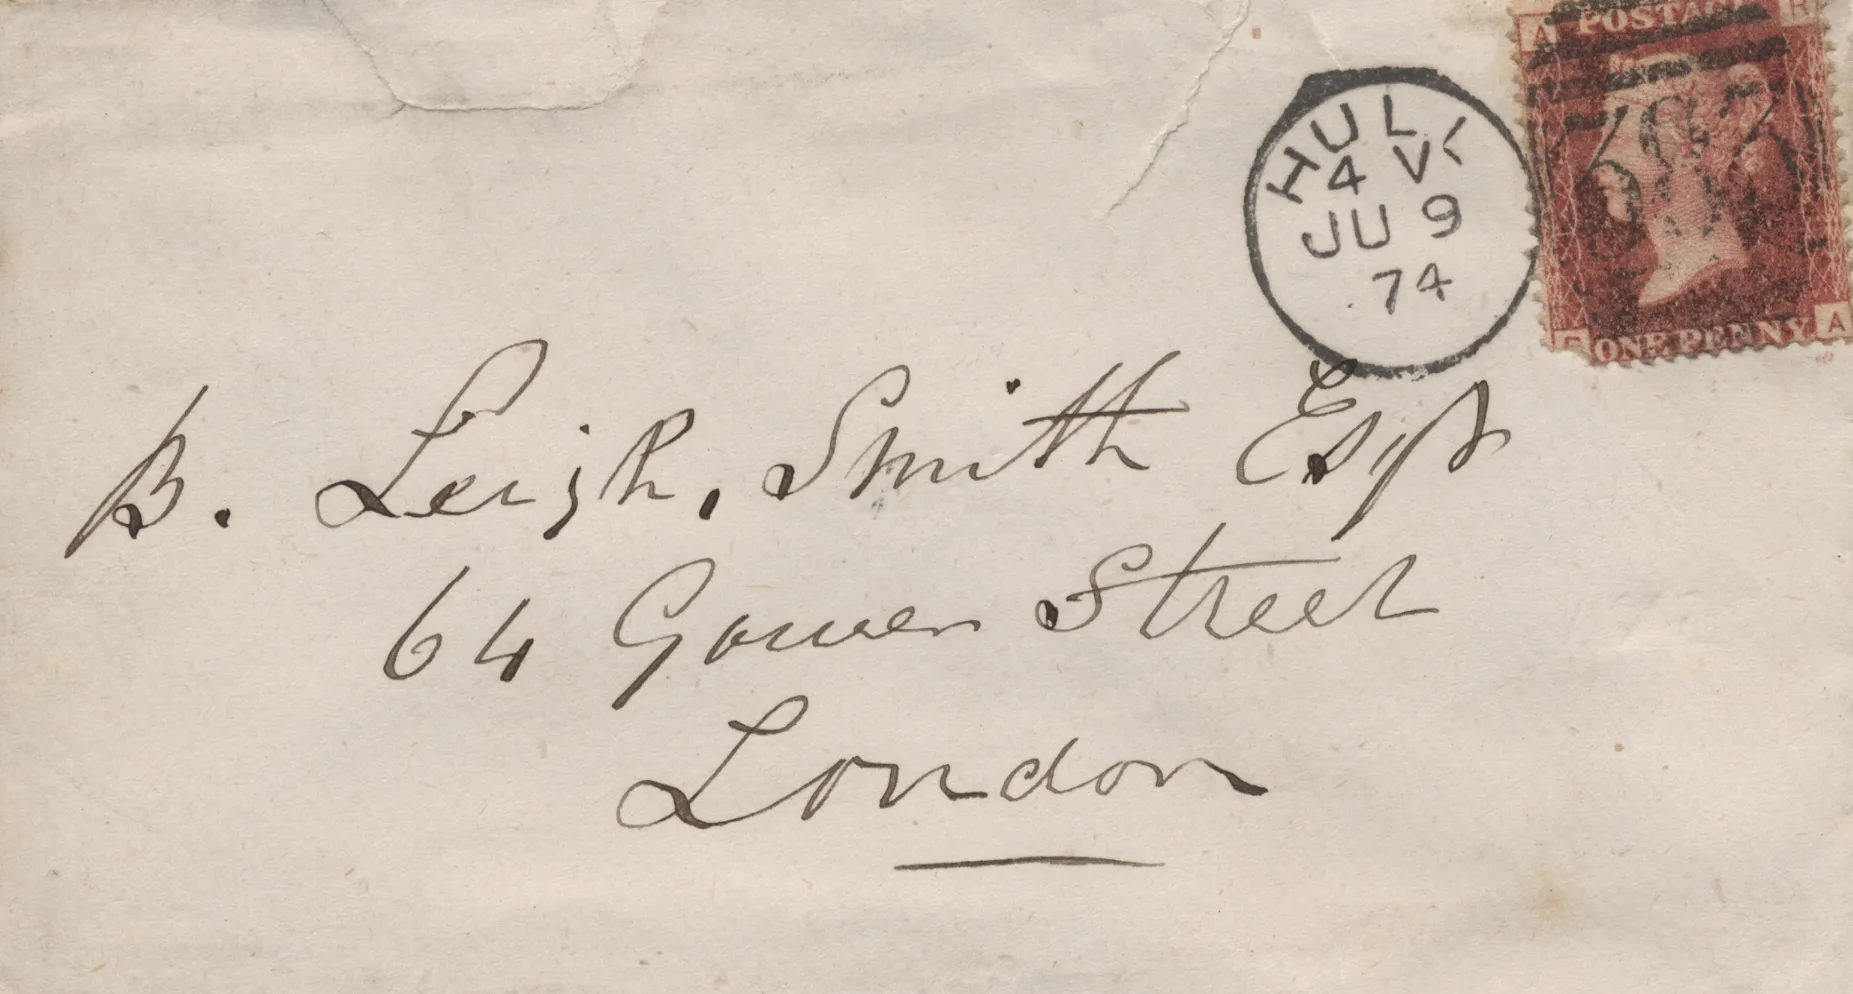 A POSTAGE R
HULL
4 V
JU 9
74
383
ONE PENNY A
B. Leigh, Smith Esqr
64 Gower Street
London